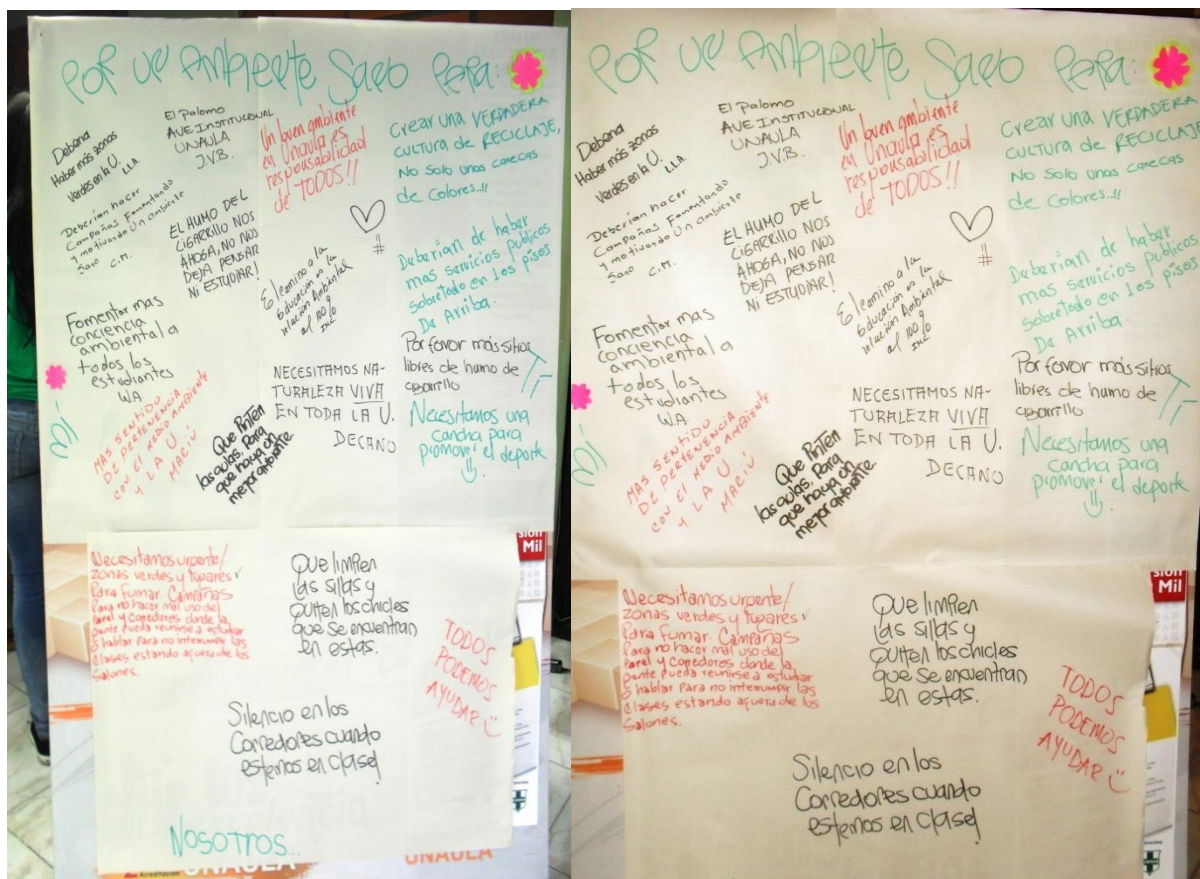 Por un Ambiente Sano Para:
Deberia
Haber más zonas
Verdes en la U.
L.L.A.
El Palomo
AVE INSTITUCIONAL
UNAULA
J.V.B.
Un buen ambiente
en Unaula es
responsabilidad
de TODOS!!
Crear una VERDADERA
CULTURA de RECICLAJE,
No solo unas canecas
de colores..!!
Deberian hacer
Campañas Fomentando
y motivando Un ambiente
Sano C.M.
EL HUMO DEL
CIGARRILLO NOS
AHOGA, NO NOS
DEJA PENSAR
NI ESTUDIAR!
#
Deberian de haber
mas servicios publicos
sobretodo en los pisos
De Arriba.
El camino a la
Educación es la
relación Ambiental
al 100
Fomentar mas
conciencia
ambiental a
todos los
estudiantes
W.A.
Por favor más sitios
libres de humo de
cigarrillo
NECESITAMOS NA-
TURALEZA VIVA
EN TODA LA U.
DECANO
MAS SENTIDO
DE PERTENENCIA
CON EL MEDIO AMBIENTE
Y LA U.
MARIÚ
Que Pinten
las aulas. Para
que haya un
mejor ambiente.
Necesitamos una
cancha para
promover el deporte
Necesitamos urgente/
zonas verdes y lugares
Para fumar. Campañas
Para no hacer mal uso del
Papel y Corredores donde la
gente pueda reunirse a estudiar
ó hablar Para no interrumpir las
Clases estando afuera de los
Salones.
Que limpien
las sillas y
Quiten los chicles
que se encuentran
en estas.
TODOS
PODEMOS
AYUDAR
Silencio en los
Corredores cuando
estemos en clase!
NOSOTROS...
sión
Mil
Acreditación
UNAULA
UNAULA
Por un Ambiente Sano Para:
Deberia
Haber más zonas
Verdes en la U.
L.L.A.
El Palomo
AVE INSTITUCIONAL
UNAULA
J.V.B.
Un buen ambiente
en Unaula es
responsabilidad
de TODOS!!
Crear una VERDADERA
CULTURA de RECICLAJE,
No solo unas canecas
de colores..!!
Deberian hacer
Campañas Fomentando
y motivando Un ambiente
Sano C.M.
EL HUMO DEL
CIGARRILLO NOS
AHOGA, NO NOS
DEJA PENSAR
NI ESTUDIAR!
#
Deberian de haber
mas servicios publicos
sobretodo en los pisos
De Arriba.
El camino a la
Educación es la
relación Ambiental
al 100
Fomentar mas
conciencia
ambiental a
todos los
estudiantes
W.A.
Por favor más sitios
libres de humo de
cigarrillo
NECESITAMOS NA-
TURALEZA VIVA
EN TODA LA U.
DECANO
MAS SENTIDO
DE PERTENENCIA
CON EL MEDIO AMBIENTE
Y LA U.
MARIÚ
Que Pinten
las aulas. Para
que haya un
mejor ambiente.
Necesitamos una
cancha para
promover el deporte
Necesitamos urgente/
zonas verdes y lugares
Para fumar. Campañas
Para no hacer mal uso del
Papel y Corredores donde la
gente pueda reunirse a estudiar
ó hablar Para no interrumpir las
Clases estando afuera de los
Salones.
Que limpien
las sillas y
Quiten los chicles
que se encuentran
en estas.
TODOS
PODEMOS
AYUDAR
Silencio en los
Corredores cuando
estemos en clase!
sión
Mil